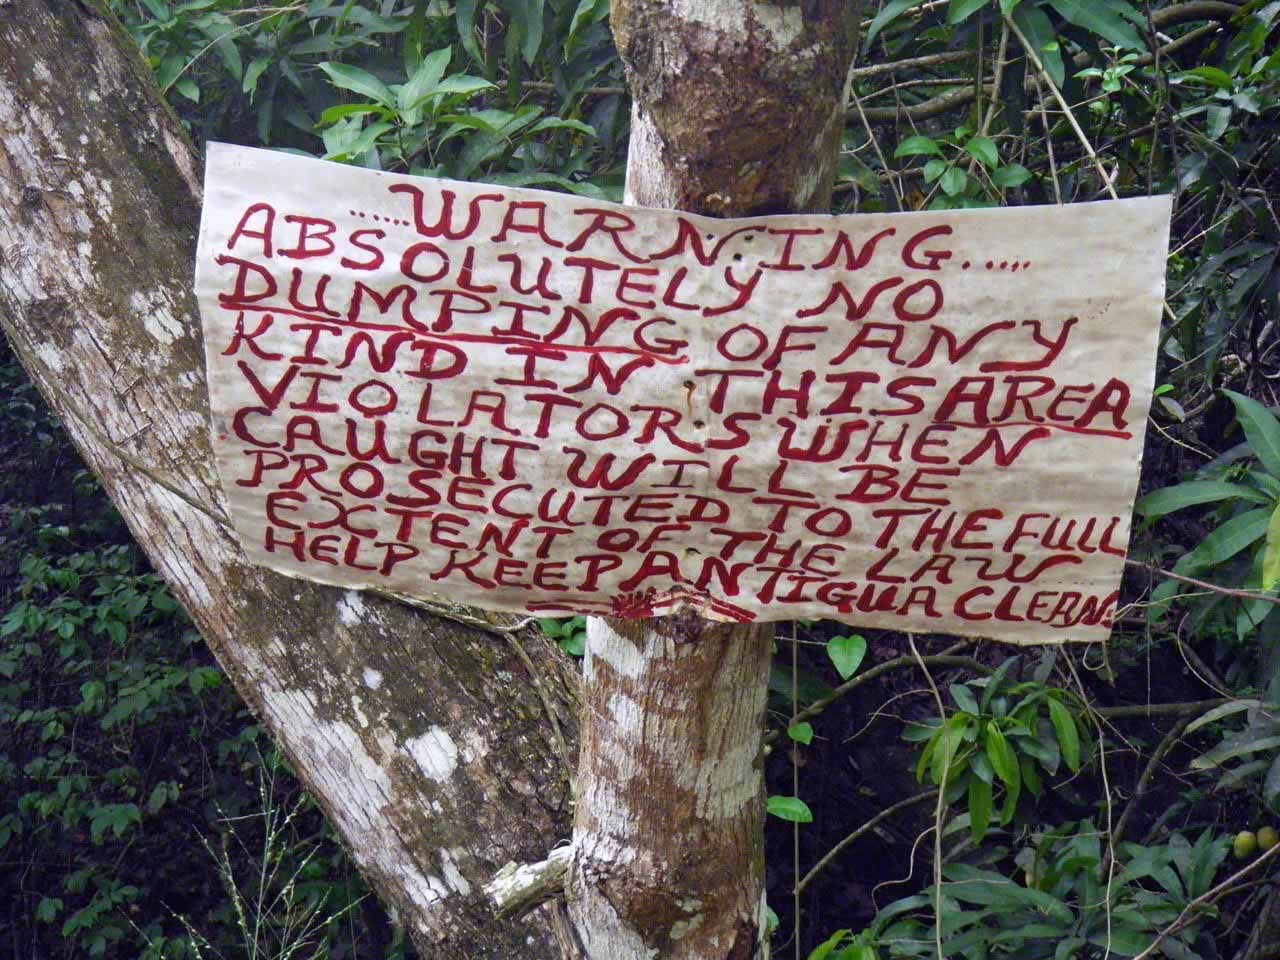 ......WARNING.....
ABSOLUTELY NO
DUMPING OF ANY
KIND IN THIS AREA
VIOLATORS WHEN
CAUGHT WILL BE
PROSECUTED TO THE FULL
EXTENT OF THE LAW
HELP KEEP ANTIGUA CLEAN